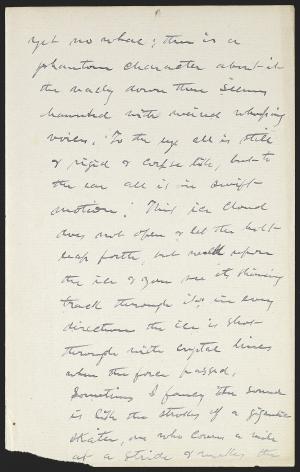 yet no whar; there is a
phantom character about it
the vally down there seems
haunted with weird whooping
voices. To the eye all is still
& rigid & corpse like, but to
the ear all is in swift
motion. This ice cloud
does not open & let the bolt
leap forth, but walk upon
the ice & you see its shining
track through it; in every
direction the ice is shot
through with crystal lines
when the force passed.
Sometimes I fancy the sound
is like the strokes of a gigantic
skater, one who covers a mile
at a stride & makes the